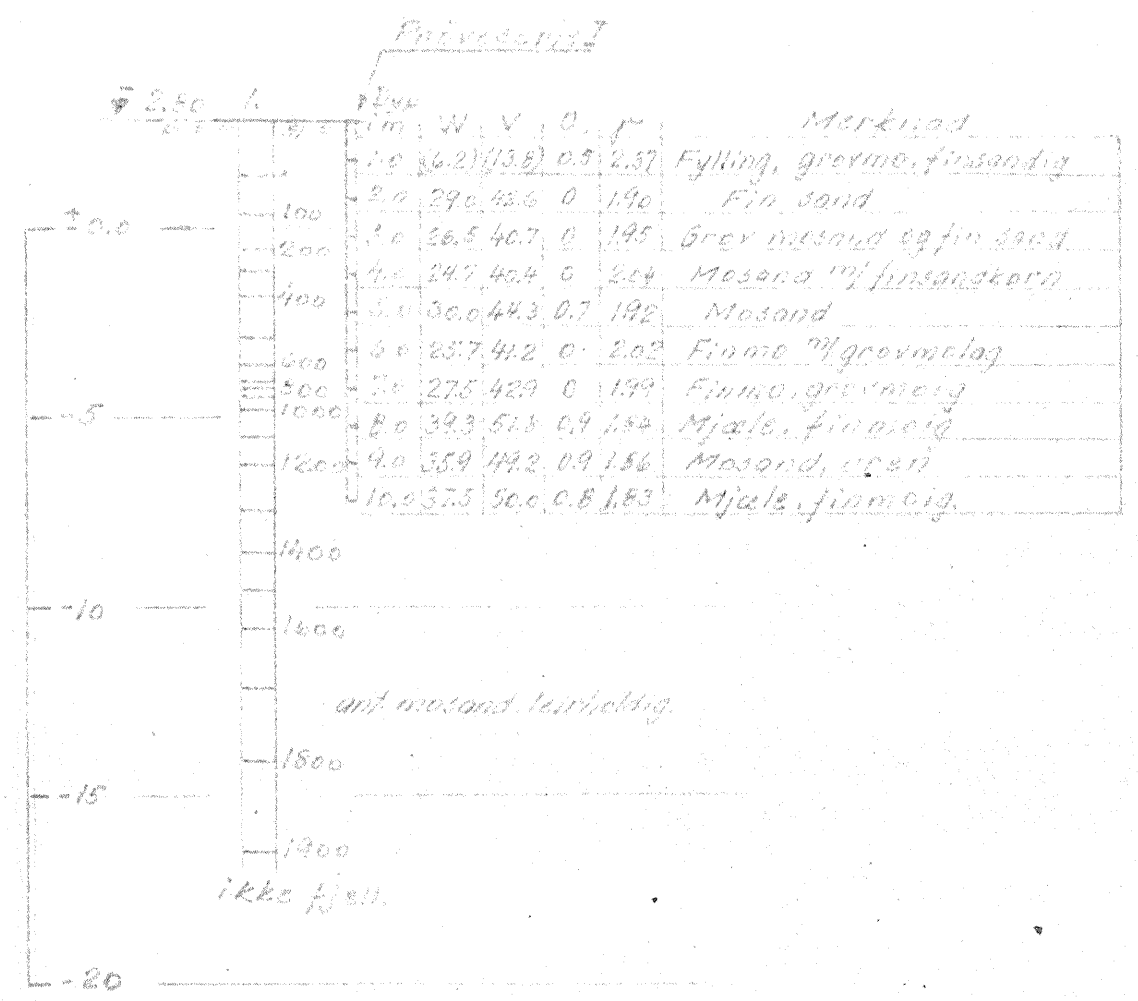 Prøveserie I
2.80 1.
Dyp
i m W V O γ Merknad
1.0 (6.2) (13.8) 0.5 2.37 Fylling, grovmo, finsandig
2.0 29.0 42.6 0 1.90 Fin sand
±0.0
100
3.0 26.5 40.7 0 1.95 Grov mosand og fin sand
200
4.0 24.7 40.4 0 2.04 Mosand m/finsandkorn
400
5.0 30.0 44.3 0.7 1.92 Mosand
6.0 25.7 41.2 0 2.02 Finmo m/grovmolag
600
7.0 27.5 42.9 0 1.99 Finmo, grovmoig
800
-5
1000
8.0 39.3 51.8 0.9 Mjæle, finmoig
1200
9.0 35.9 49.2 0.9 1.86 Mosand, uren
10.0 37.5 50.0 0.8 1.83 Mjæle, finmoig.
1400
-10
1600
ant. mosand leirholdig.
1800
-15
1900
ikke fjell.
-20